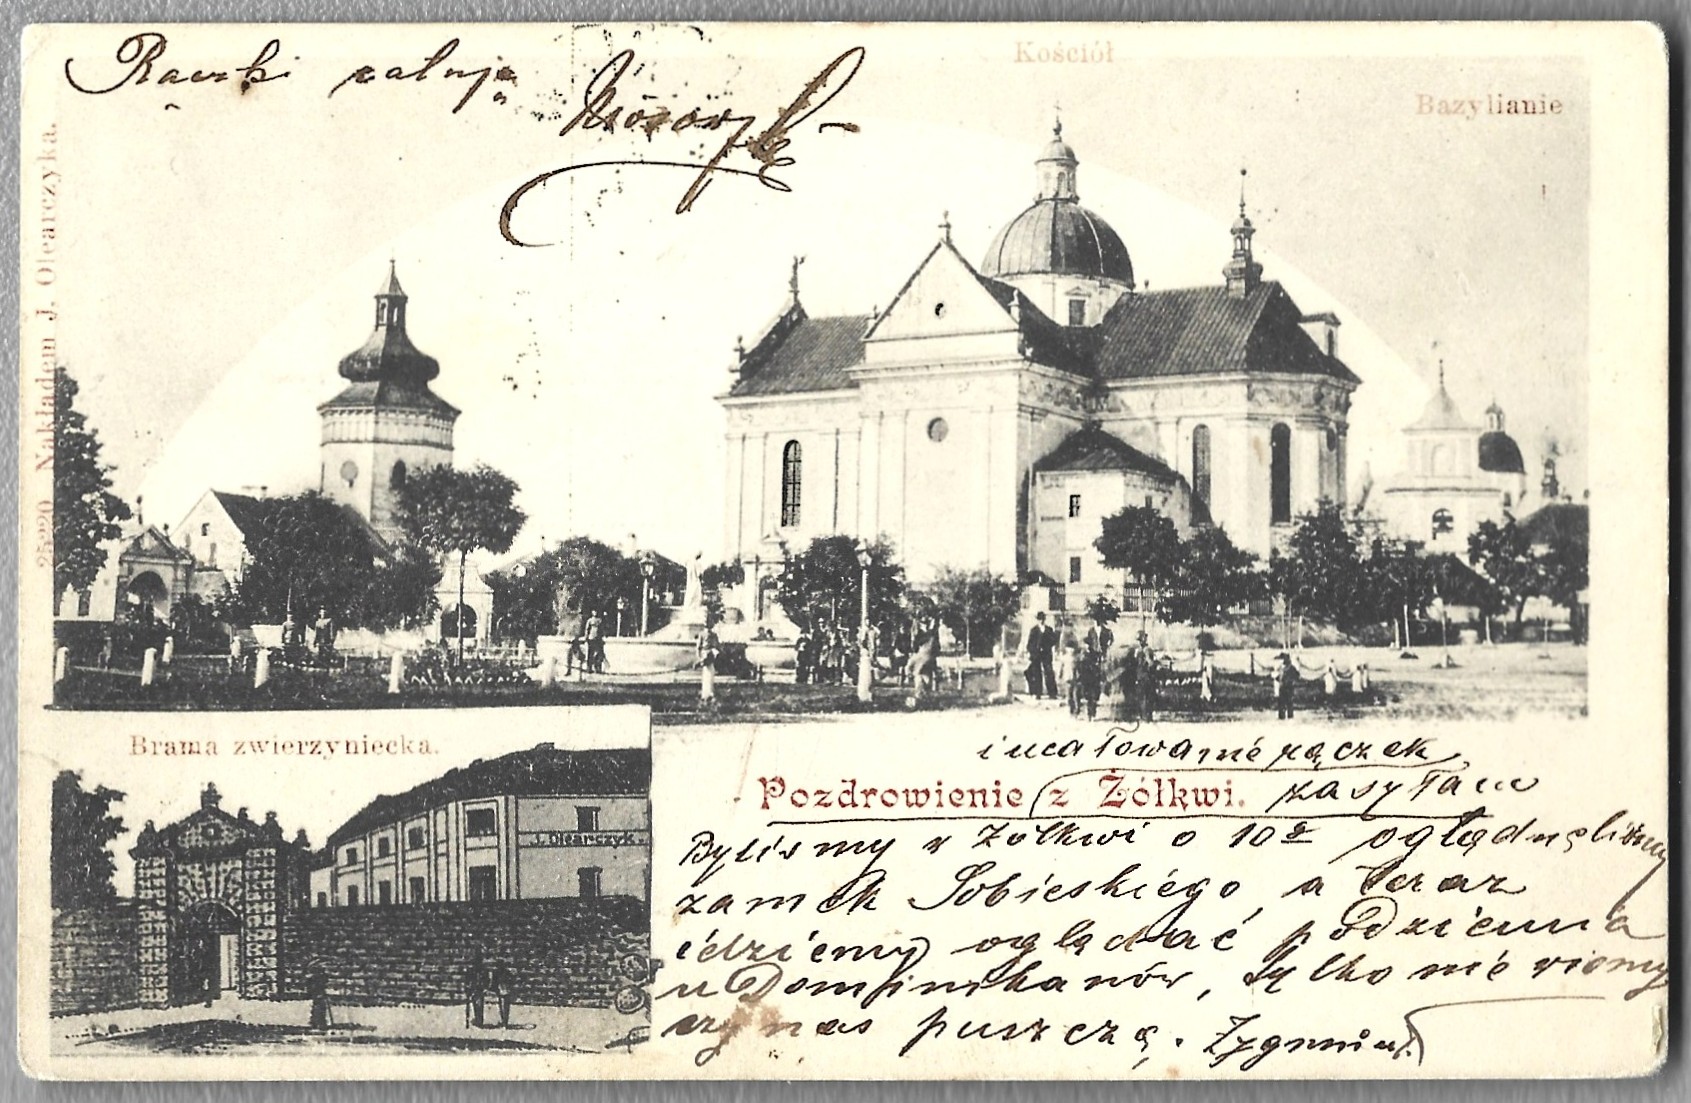 Kościół
Bazylianie
Rączki całuję
25220 Nakładem J. Olearczyka.
Brama zwierzyniecka.
J. Olearczyk
i ucałowanie rączek
Pozdrowienie z Żółkwi.
zasyłam
Byliśmy w Żółkwi o 10
zamek Sobieskiego, a teraz
idziemy oglądać podziemia
u Dominikanów, tylko nie wiemy
czy nas puszczą. Zygmunt